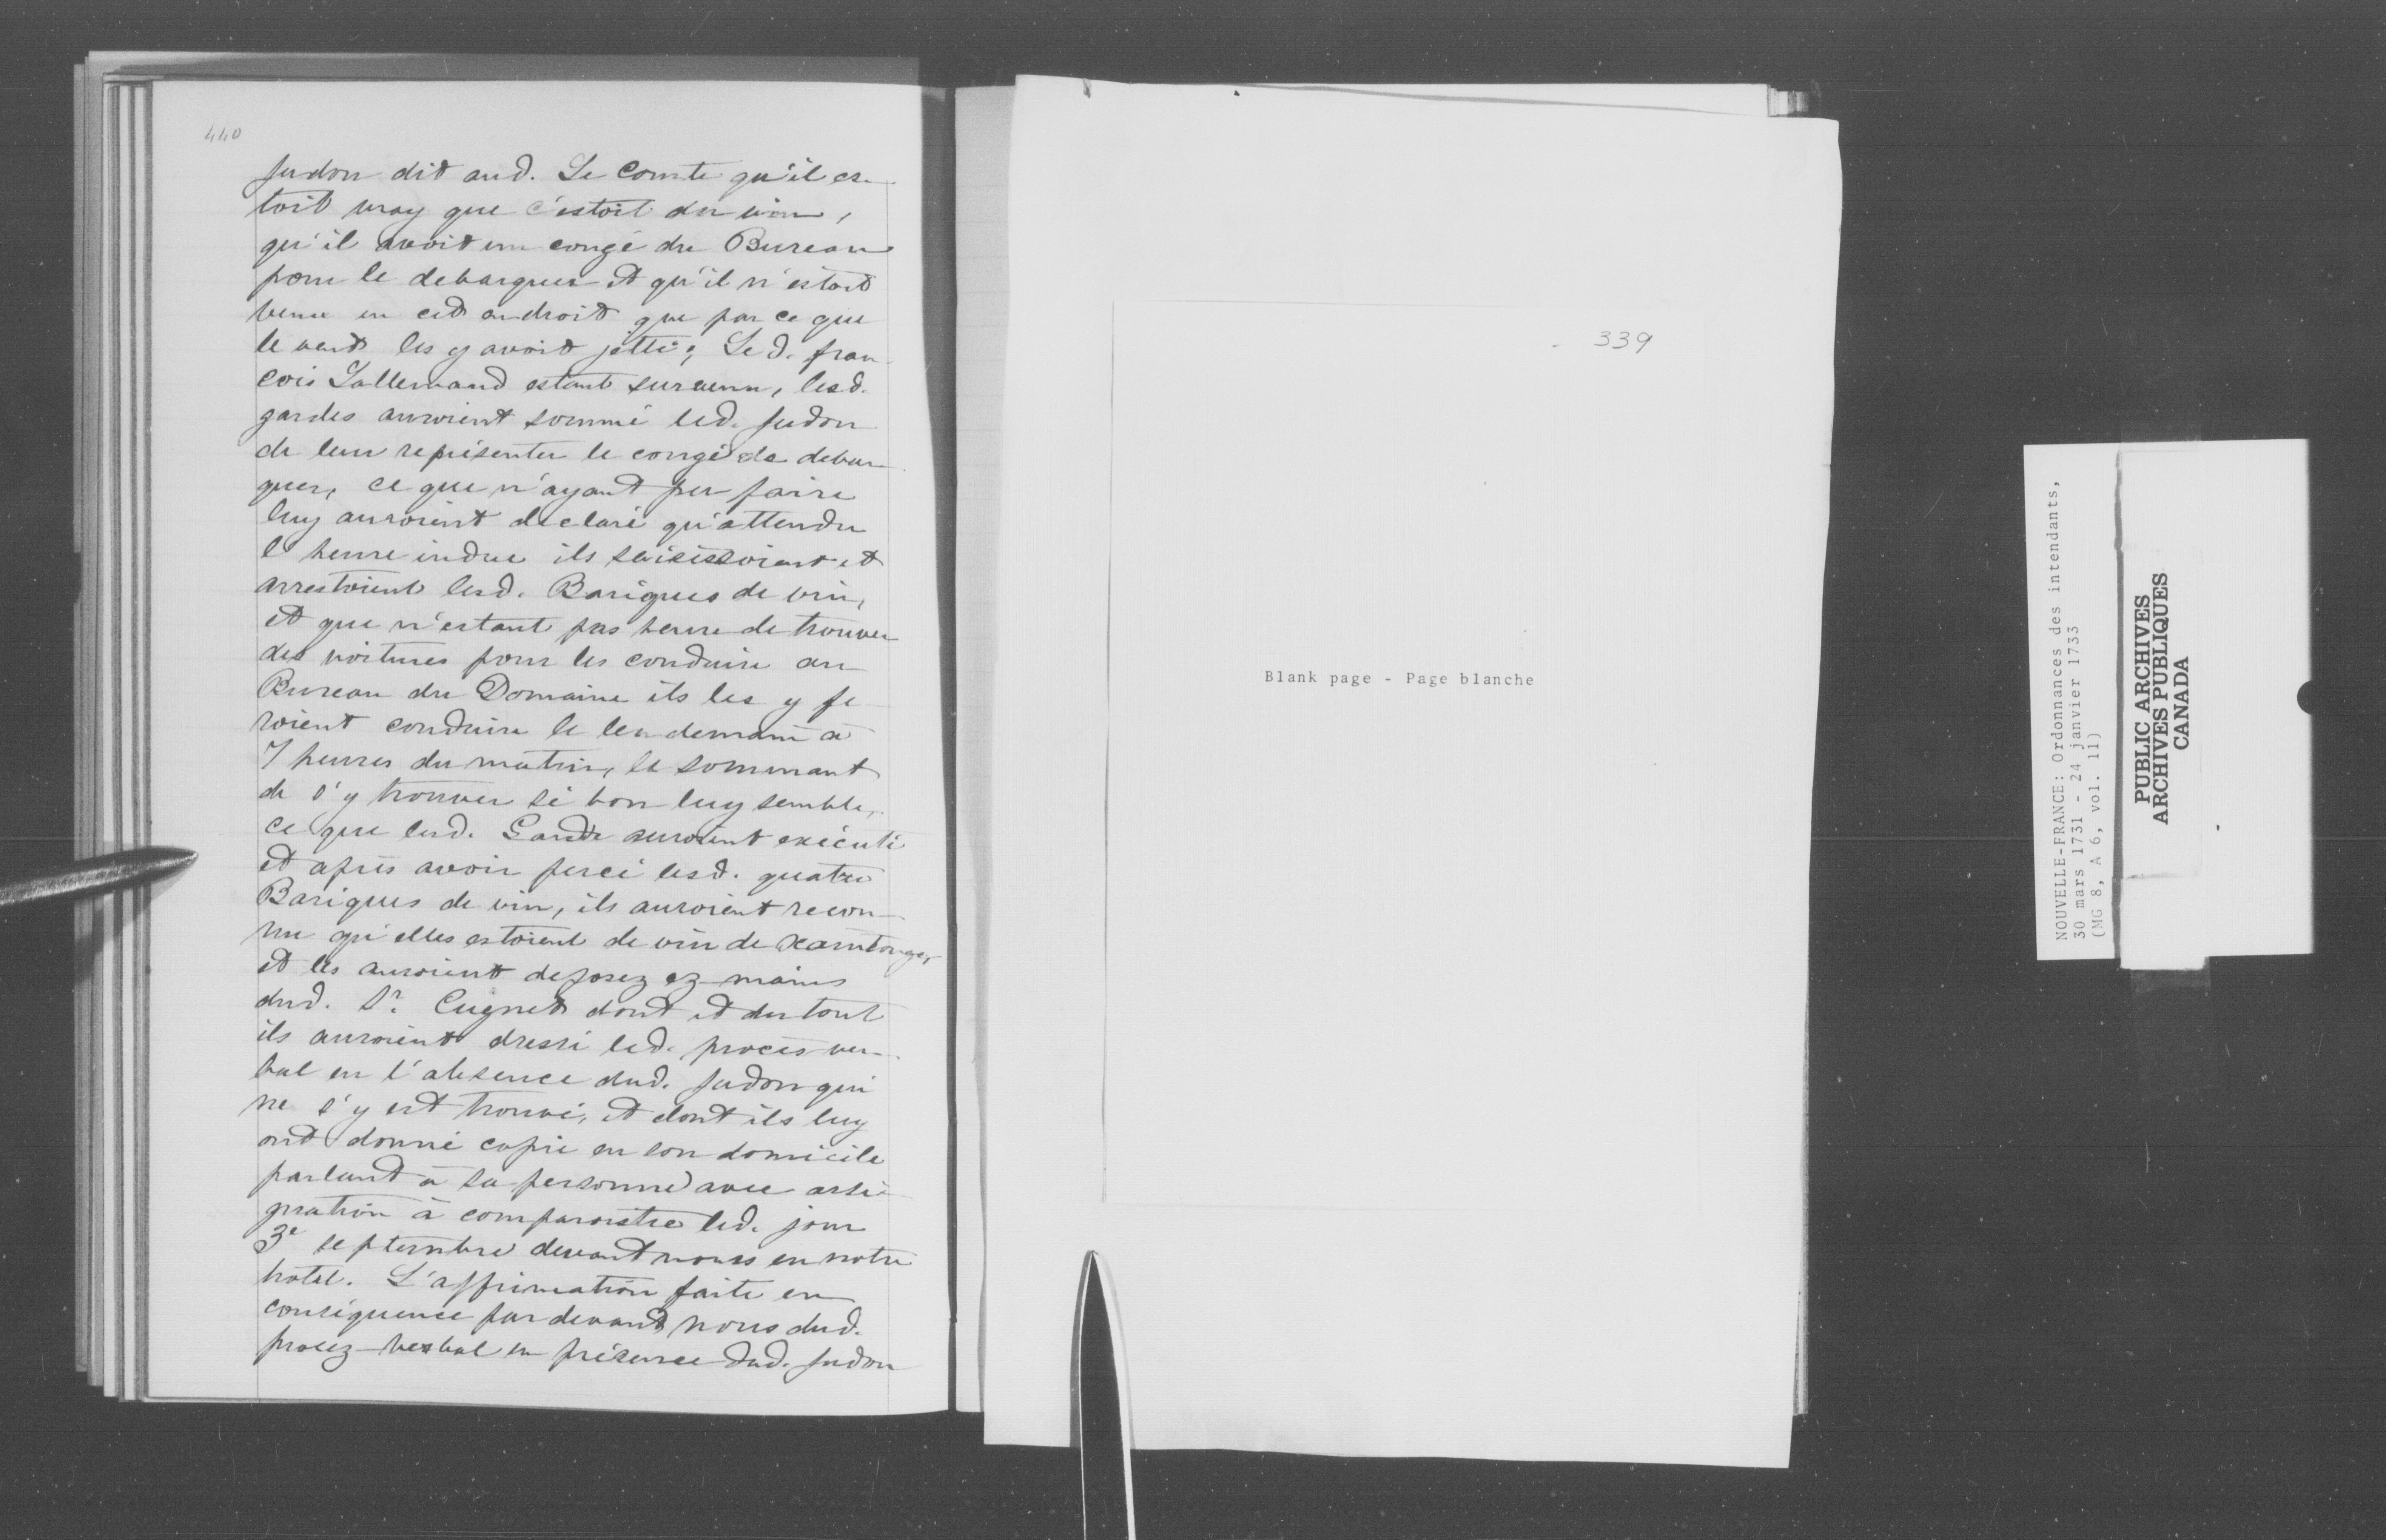 440
Judon dit aud. Le Comte qu'il es-
toit vray que c'estoit du vin,
qu'il avoit un congé du Bureau
pour le debarquer et qu'il n'estoit
venu en cet androit que par ce que
le vent les y avoit jetté; Led. fran-
cois Lallemand estant survenu, lesd.
gardes auroient sommé led. Judon
de leur représenter le congé de debar-
quer, ce que n'ayant peu faire
luy auroient declaré qu'attendu
l'heure indue ils saisissoient et
arrestoient lesd. Bariques de vin,
et que n'estant pas heure de trouver
des voitures pour les conduire au
Bureau du Domaine ils les y fe-
roient conduire le lendemain à
7 heures du matin, le sommant
de s'y trouver si bon luy semble,
ce que lesd. Garde auroient exécuté
et après avoir percé lesd. quatre
Bariques de vin, ils auroient recon-
nu qu'elles estoient de vin de Xaintonge,
et les auroient deposez ez mains
dud. Sr. Cugnet dont et du tout
ils auroient dressé led. procès ver-
bal en l'absence dud. Judon qui
ne s'y est trouvé, et dont ils luy
ont donné copie en son domicile
parlant à sa personne avec assi-
gnation à comparoistre led. jour
3e septembre devant nous en notre
hotel. L'affirmation faite en
conséquence par devant nous dud.
procez-verbal en présence dud. Judon
339
Blank page - Page blanche
NOUVELLE-FRANCE: Ordonnances des intendants,
30 mars 1731 - 24 janvier 1733
(MG 8, A 6, vol. 11)
PUBLIC ARCHIVES
ARCHIVES PUBLIQUES
CANADA